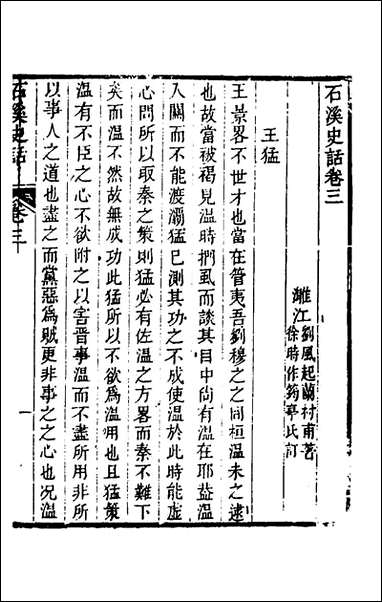 石溪史話卷三
濰江劉風起蘭村甫著
徐時作筠亭氏訂
王猛
王景畧不世才也當在管夷吾劉穆之之間桓温未之逮
也故當被褐見温時捫虱而談其目中尚有温在耶益温
入關而不能渡灞猛已測其功之不成使温於此時能虚
心問所以取秦之策則猛必有佐温之方畧而秦不難下
矣而温不然故無成功此猛所以不欲爲温用也且猛策
温有不臣之心不欲附之以害晋事温而不盡所用非所
以事人之道也盡之而黨惡爲賊更非事之之心也况温
石溪史話
卷三
一